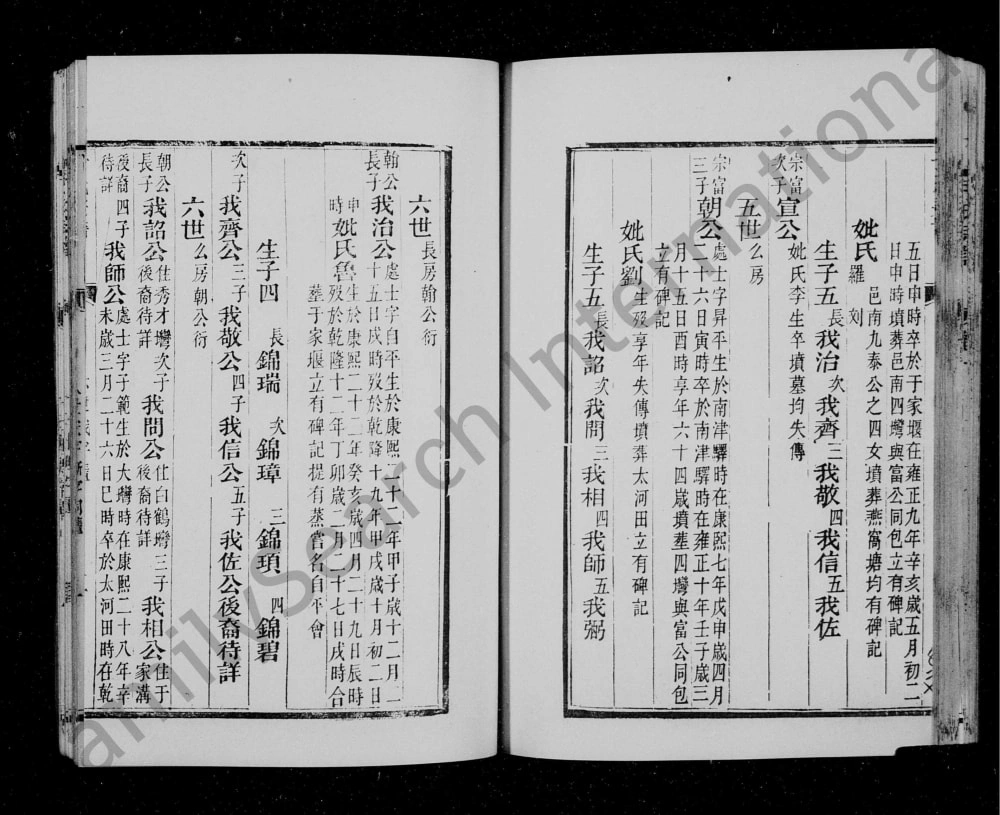 五日申時卒於于家堰在雍正九年辛亥歲五月初二
日申時墳葬邑南四灣與富公同包立有碑記
妣氏羅刘 邑南九泰公之四女墳葬燕窩塘均有碑記
生子五 長我治 次我齊 三我敬 四我信 五我佐
宗富次子宣公 妣氏李生卒墳墓均失傳
五世 么房
宗富三子朝公 處士字昇平生於南津驛時在康熙七年戊申歲四月
二十六日寅時卒於南津驛時在雍正十年壬子歲三
月十五日酉時享年六十四歲墳塟四灣與富公同包
立有碑記
妣氏劉 生歿享年失傳墳葬太河田立有碑記
生子五 長我詔 次我問 三我相 四我師 五我弼
六世 長房翰公衍
翰公長子我治公 處士字自平生於康熙二十三年甲子歲十二月一
十五日戌時歿於乾隆十九年甲戌歲十月初二日
申時 妣氏魯 生於康熙二十二年癸亥歲四月二十九日辰時
歿於乾隆十二年丁卯歲二月二十七日戌時合
塟于家堰立有碑記提有蒸嘗名自平會
生子四 長錦瑞 次錦璋 三錦頊 四錦碧
次子我齊公 三子我敬公 四子我信公 五子我佐公後裔待詳
六世 么房朝公衍
朝公長子我詔公 住秀才灣後裔待詳 次子我問公 住白鶴灣後裔待詳 三子我相公 住于家溝
後裔待詳 四子我師公 處士字子範生於大灣時在康熙二十八年辛
未歲三月二十六日巳時卒於太河田時在乾
FamilySearch International